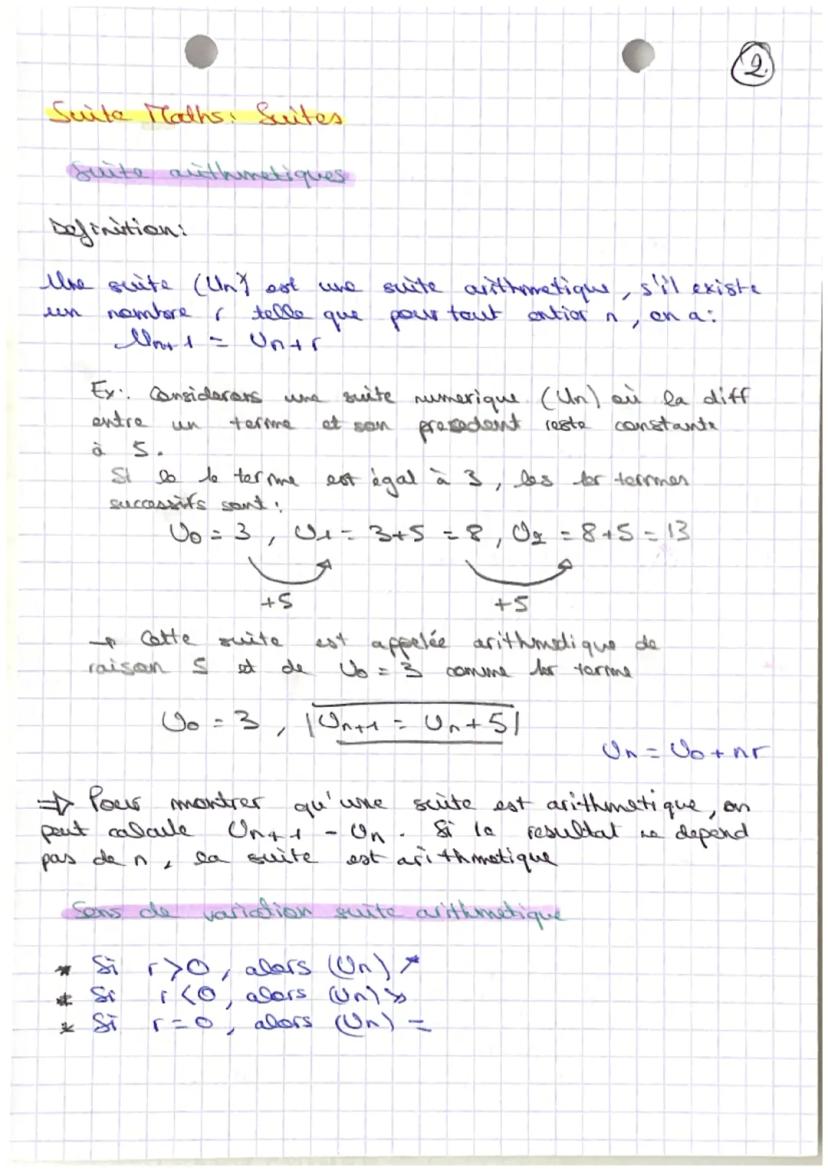 2.
Suite Maths: Suites
Suite arithmetiques
Definition:
Une suite (Un) est une suite arithmetique, s'il existe
un nombre r telle que pour tout entier n, on a:
Un+1 = Un+r
Ex: Considerons une suite numerique (Un) où la diff
entre un terme et son precedent reste constante
à 5.
Si le 1er terme est égal à 3, les 1er termes
successifs sont:
U0 = 3, U1 = 3+5 = 8, U2 = 8+5 = 13
+5 +5
→ Cette suite est appelée arithmetique de
raison 5 et de U0 = 3 comme 1er terme
U0 = 3, |Un+1 = Un + 5|
Un = U0 + nr
⇒ Pour montrer qu'une suite est arithmetique, on
peut calcule Un+1 - Un. Si le resultat ne depend
pas de n, la suite est arithmetique
Sens de variation suite arithmetique
* Si r>0, alors (Un) ↗
* Si r<0, alors (Un) ↘
* Si r=0, alors (Un) =